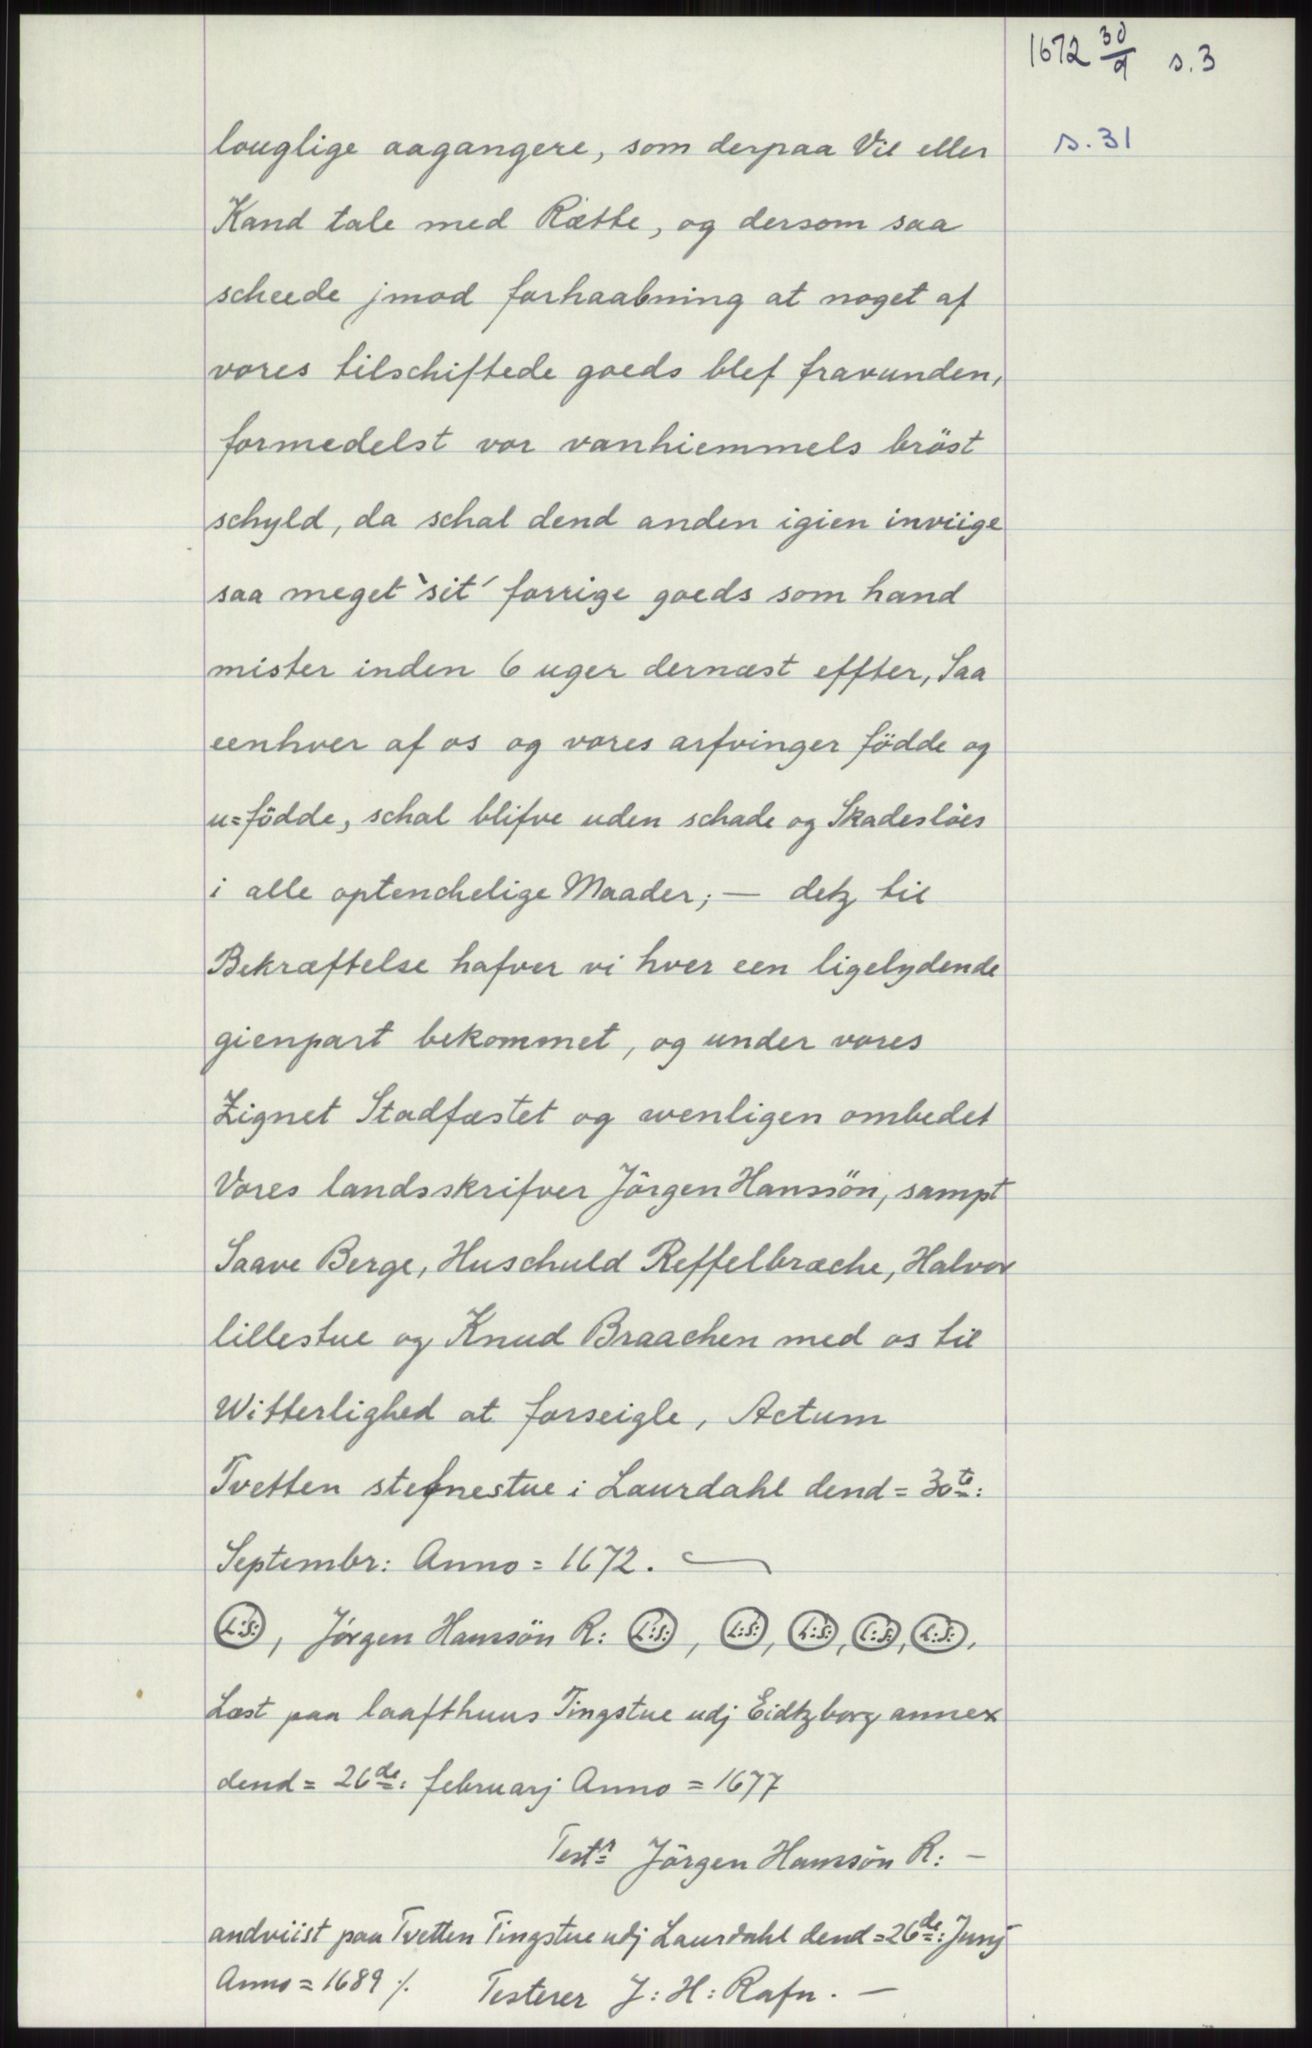 1672 30/9 s.3
s.31
louglige aagangere, som derpaa Vil eller
Kand tale med Rætte, og dersom saa
scheede jmod forhaabning at noget af
vores tilschiftede goeds blef fravunden,
formedelst vor vanhiemmels bröst
schyld, da schal dend anden igien inviige
saa meget `sit´ forrige goeds som hand
mister inden 6 uger dernæst effter, Saa
eenhver af os og vores arfvinger födde og
u=födde, schal blifve uden schade og Skadeslöes
i alle optenchelige Maader; — detz til
Bekræftelse hafver vi hver een ligelydende
gienpart bekommet, og under vores
Zignet Stadfæstet og wenligen ombedet
Vores landsskrifver Jörgen Hanssön, sampt
Saave Berge, Huschuld Reffelbræche, Halvor
lillestue og Knud Braachen med os til
Witterlighed at forseigle, Actum
Tvetten stefnestue i Laurdahl dend= 30te:
Septembr: Anno = 1672.
L:S:, Jörgen Hanssön R: L:S:, L:S:, L:S:, L:S:, L:S:,
Læst paa laafthuus Tingstue udj Eidtzborg annex
dend= 26de: februarj Anno = 1677
Testr Jörgen Hanssön R: —
andviist paa Tvetten Tingstue udj Laurdahl dend=26de: Junj
Anno = 1689 ⁒ Testerer J: H: Rafn. —